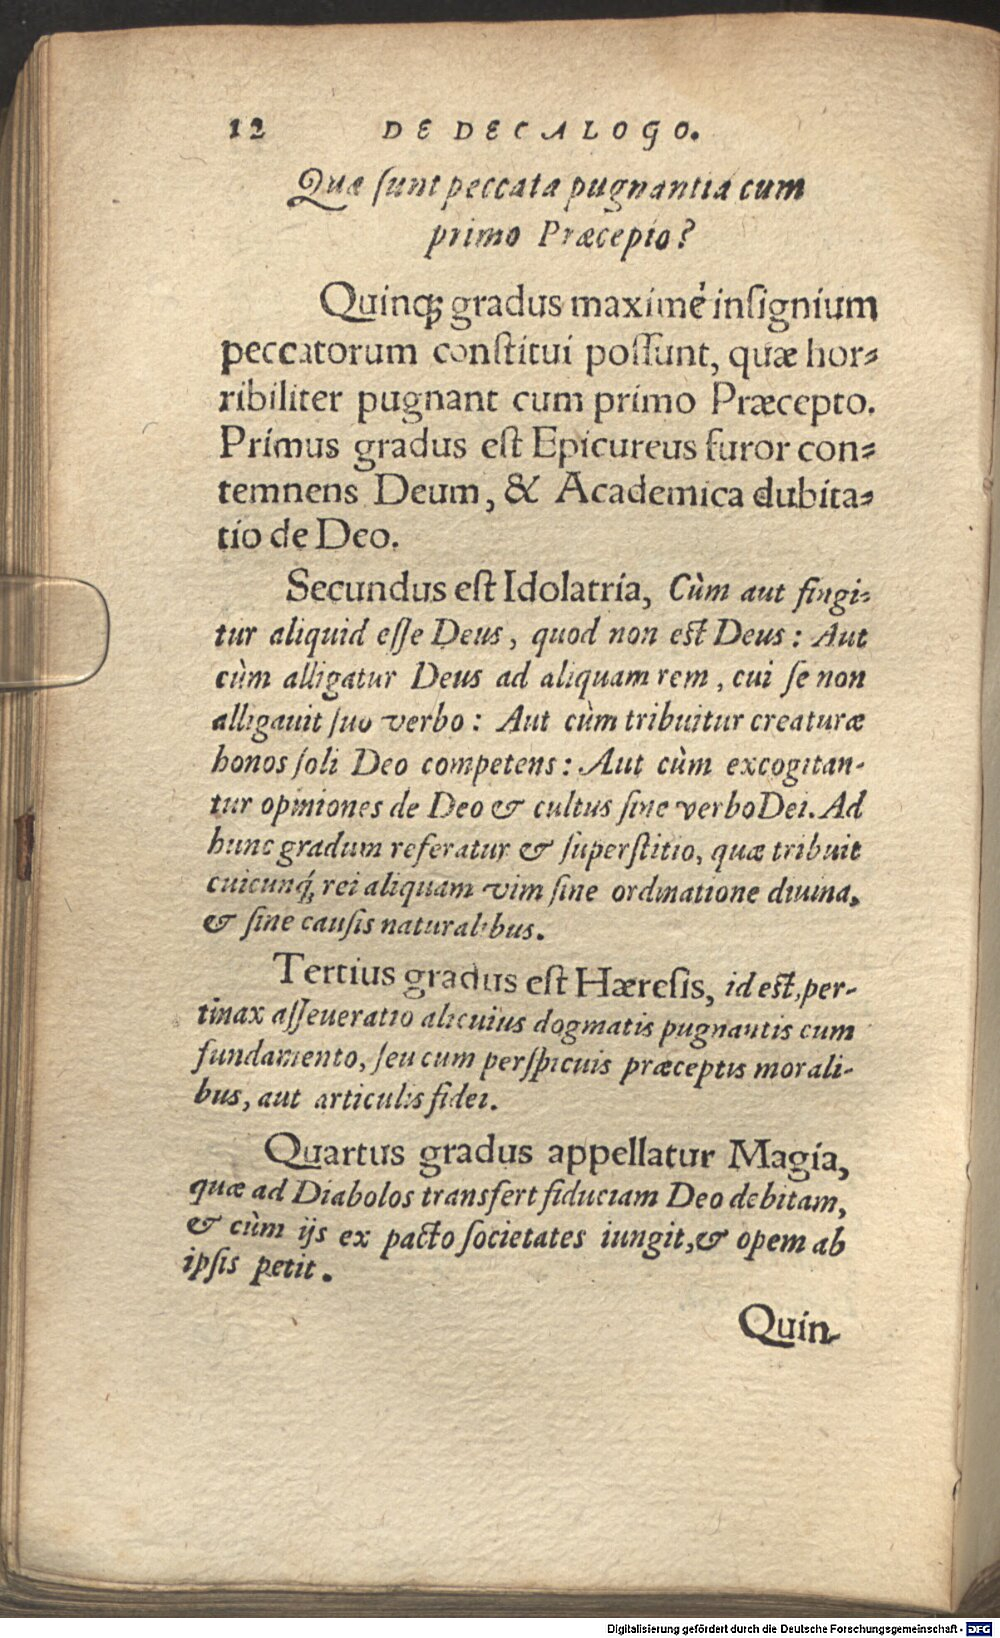 12 DE DECALOGO.
Quæ ſunt peccata pugnantia cum
primo Præcepto?
Quinq; gradus maximè inſignium
peccatorum conſtitui poſſunt, quæ hor-
ribiliter pugnant cum primo Præcepto.
Primus gradus eſt Epicureus furor con-
temnens Deum, & Academica dubita-
tio de Deo.
Secundus eſt Idolatria, Cùm aut fingi-
tur aliquid eſſe Deus, quod non eſt Deus: Aut
cùm alligatur Deus ad aliquam rem, cui ſe non
alligauit ſuo verbo: Aut cùm tribuitur creaturæ
honos ſoli Deo competens: Aut cùm excogitan-
tur opiniones de Deo & cultus ſine verbo Dei. Ad
hunc gradum referatur & ſuperſtitio, quæ tribuit
cuicunq́; rei aliquam vim ſine ordinatione diuina,
& ſine cauſis naturalibus.
Tertius gradus eſt Hæreſis, id eſt, per-
tinax aſſeueratio alicuius dogmatis pugnantis cum
fundamento, ſeu cum perſpicuis præceptis morali-
bus, aut articulis fidei.
Quartus gradus appellatur Magia,
quæ ad Diabolos transfert fiduciam Deo debitam,
& cùm ijs ex pacto ſocietates iungit, & opem ab
ipſis petit.
Quin-
Digitalisierung gefördert durch die Deutsche Forschungsgemeinschaft - DFG